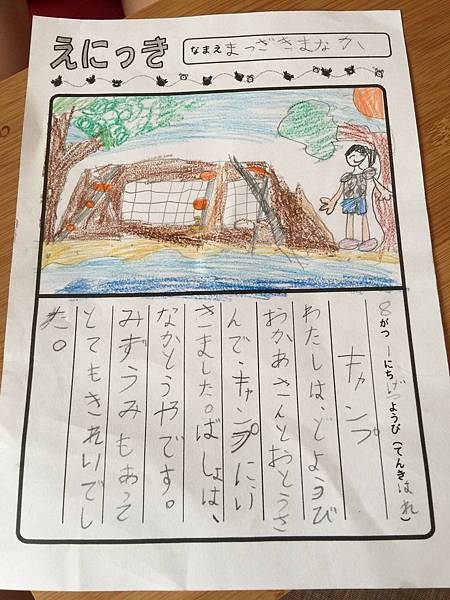 えにっき
なまえ まつざきまなか
8がつ 1にち げつようび(てんき はれ)
キャンプ
わたしは、どようび
おかあさんとおとうさ
んで、キャンプにい
きました。ばしょは、
なかとうやです。
みずうみもあって
とてもきれいでし
た。